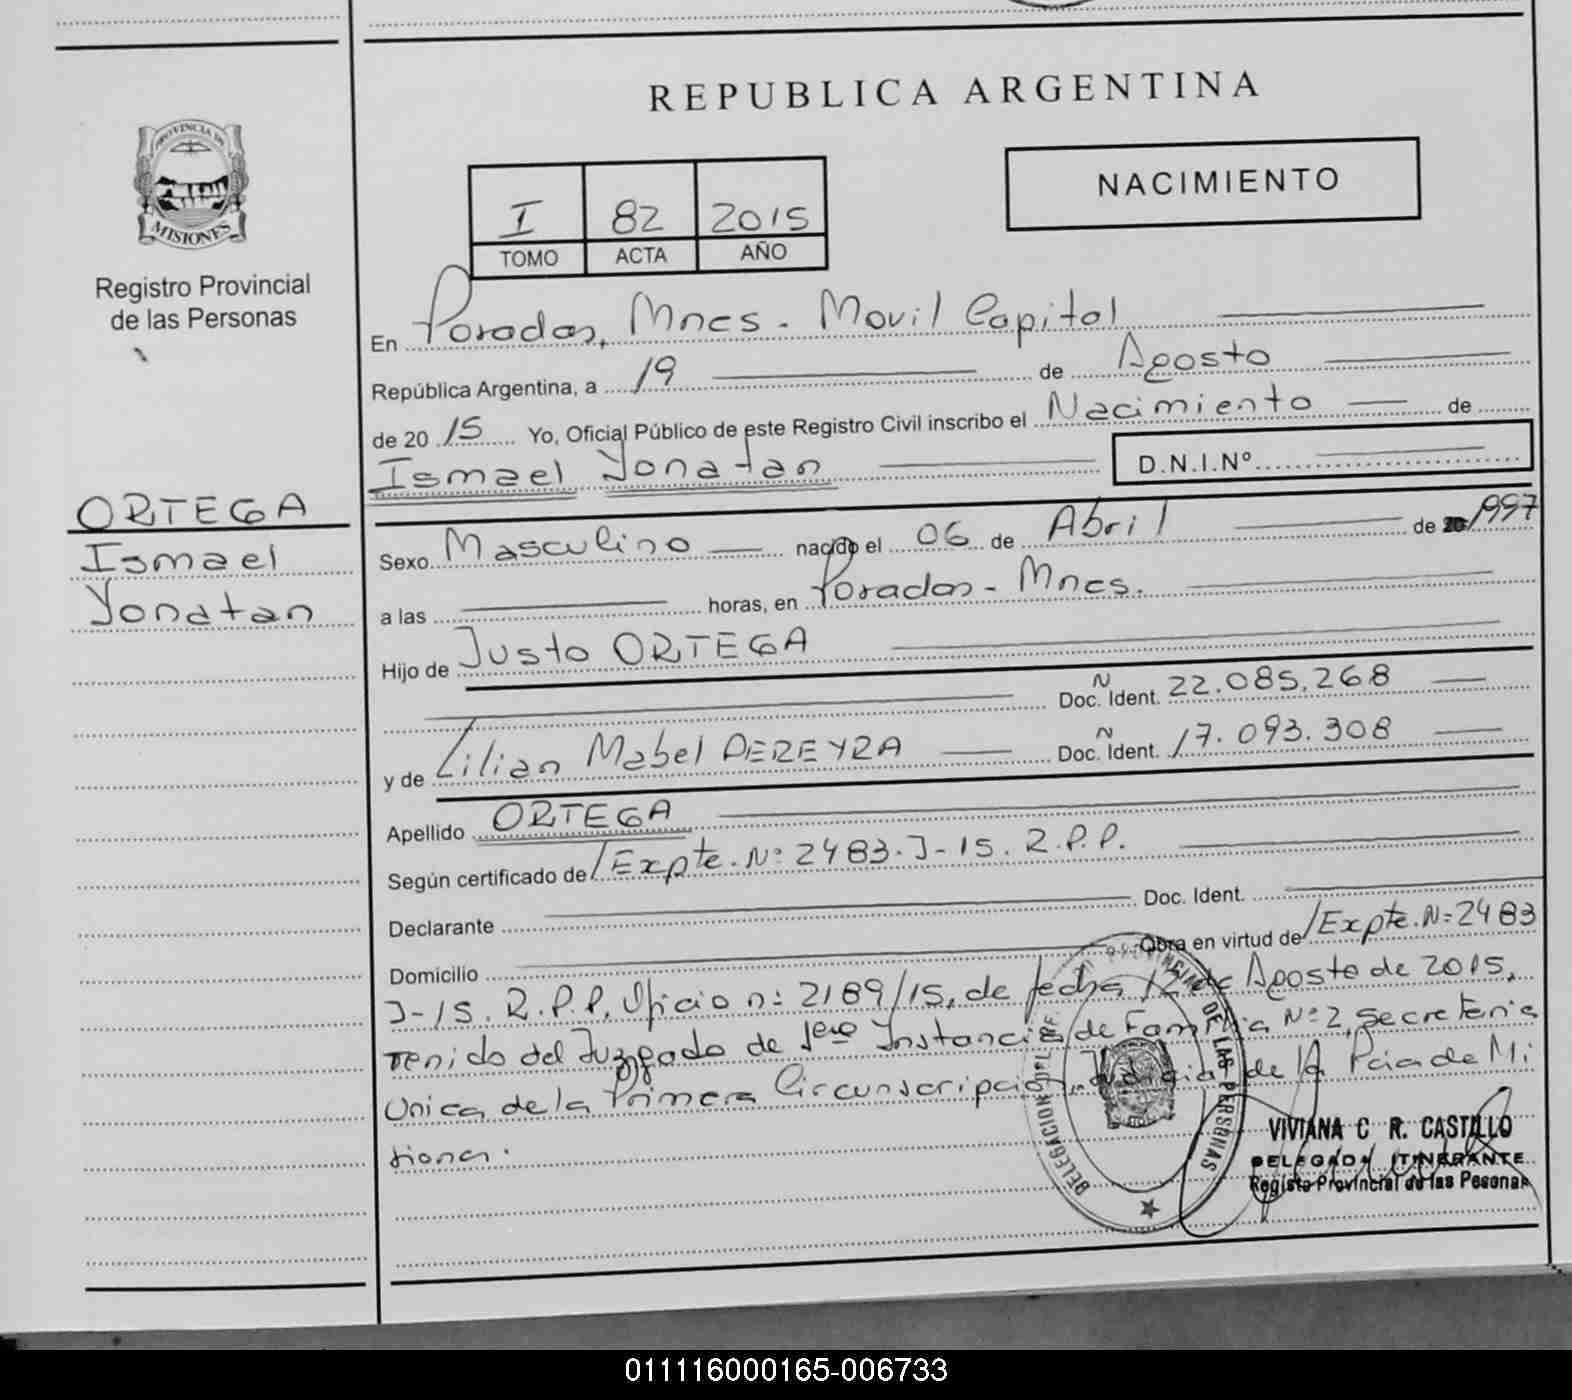 REPUBLICA ARGENTINA
PROVINCIA DE
MISIONES
Registro Provincial
de las Personas
NACIMIENTO
I 82 2015
TOMO ACTA AÑO
En Posadas, Mnes. Movil Capital
República Argentina, a 19 de Agosto
de 2015 Yo, Oficial Público de este Registro Civil inscribo el Nacimiento de
Ismael Yonatan D.N.I.Nº
ORTEGA
Ismael
Yonatan
Sexo Masculino nacido el 06 de Abril de 1997
a las horas, en Posadas - Mnes.
Hijo de Justo ORTEGA
Doc. Ident. 22.085.268
y de Lilian Mabel PEREYRA Doc. Ident. 17.093.308
Apellido ORTEGA
Según certificado de /Expte. Nº 2483-J-15. R.P.P.
Declarante Doc. Ident.
Domicilio Obra en virtud de /Expte. Nº 2483
J-15. R.P.P. Oficio nº 2189/15, de fecha 12 de Agosto de 2015,
venido del Juzgado de 1ero Instancia de Familia Nº 2, Secretaria
Unica de la Primera Circunscripcion Judicial de la Pcia de Mi
siones.
DELEGACION DE LAS PERSONAS
VIVIANA C R. CASTILLO
DELEGADA ITINERANTE
Registro Provincial de las Pesonas
011116000165-006733